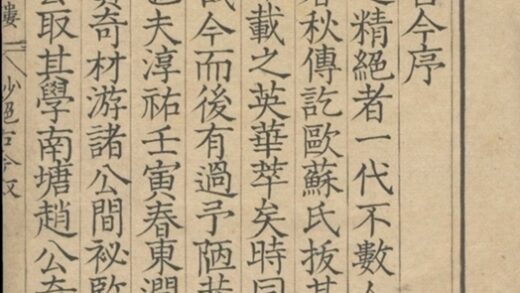 古今序
精絕者一代不數人
春秋傳訖歐蘇氏拔其
載之英華萃矣時同
今而後有過予陋
也夫淳祐壬寅春東澗
奇材游諸公間祕監
公取其學南塘趙公
妙絕古今文